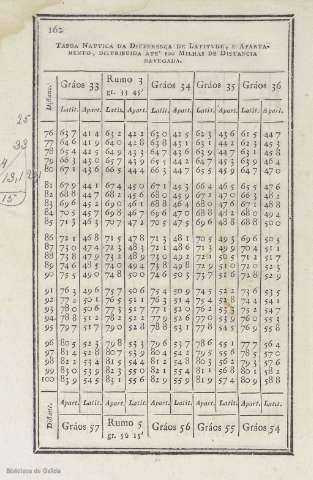 162
TABOA NAUTICA DA DIFFERENÇA DE LATITUDE, E APARTA-
MENTO, DISTRIBUIDA ATE' 100 MILHAS DE DISTANCIA
NAVEGADA.
Distanc. Gráos 33 Rumo 3 gr. 33 45' Gráos 34 Gráos 35 Gráos 36
Latit. Apart. Latit. Apart. Latit. Apart. Latit. Apart. Latit. Apart.
76 63 7 41 4 63 2 42 2 63 0 42 5 62 3 43 6 61 5 44 7
77 64 6 41 9 64 0 42 8 63 8 43 1 63 1 44 2 62 3 45 3
78 65 4 42 5 64 9 43 3 64 7 43 6 63 9 44 7 63 1 45 9
79 66 3 43 0 65 7 43 9 65 5 44 2 64 7 45 3 63 9 46 4
80 67 1 43 6 66 5 44 4 66 3 44 7 65 5 45 9 64 7 47 0
81 67 9 44 1 67 4 45 0 67 1 45 3 66 4 46 5 65 5 47 6
82 68 8 44 7 68 2 45 6 68 0 45 9 67 2 47 0 66 3 48 2
83 69 6 45 2 69 0 46 1 68 8 46 4 68 0 47 6 67 1 48 8
84 70 5 45 7 69 8 46 7 69 6 47 0 68 8 48 2 68 0 49 4
85 71 3 46 3 70 7 47 2 70 5 47 5 69 6 48 8 68 8 50 0
86 72 1 46 8 71 5 47 8 71 3 48 1 70 5 49 3 69 6 50 5
87 73 0 47 4 72 3 48 3 72 1 48 6 71 3 49 9 70 4 51 1
88 73 8 47 9 73 2 48 9 73 0 49 2 72 1 50 5 71 2 51 7
89 74 6 48 5 74 0 49 4 73 8 49 8 72 9 51 0 72 0 52 3
90 75 5 49 0 74 8 50 0 74 6 50 3 73 7 51 6 72 8 52 9
91 76 3 49 6 75 7 50 6 75 4 50 9 74 5 52 2 73 6 53 5
92 77 2 50 1 76 5 51 1 76 3 51 4 75 4 52 8 74 4 54 1
93 78 0 50 6 77 3 51 7 77 1 52 0 76 2 53 3 75 2 54 7
94 78 8 51 2 78 2 52 2 77 9 52 6 77 0 53 9 76 0 55 3
95 79 7 51 7 79 0 52 8 78 8 53 1 77 8 54 5 76 9 55 8
96 80 5 52 3 79 8 53 3 79 6 53 7 78 6 55 1 77 7 56 4
97 81 4 52 8 80 7 53 9 80 4 54 2 79 5 55 6 78 5 57 0
98 82 2 53 4 81 5 54 4 81 2 54 8 80 3 56 2 79 3 57 6
99 83 0 53 9 82 3 55 0 82 1 55 4 81 1 56 8 80 1 58 2
100 83 9 54 5 83 1 55 6 82 9 55 9 81 9 57 4 80 9 58 8
Distanc. Apart. Latit. Apart. Latit. Apart. Latit. Apart. Latit. Apart. Latit.
Gráos 57 Rumo 5 gr. 56 15' Gráos 56 Gráos 55 Gráos 54
25
33
15
Biblioteca de Galicia